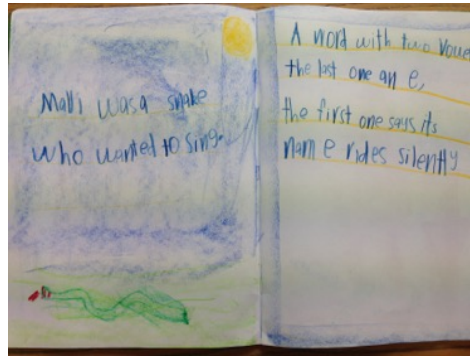 Malli was a snake
who wanted to sing.
A word with two vowe
the last one an e,
the first one says its
nam e rides silently